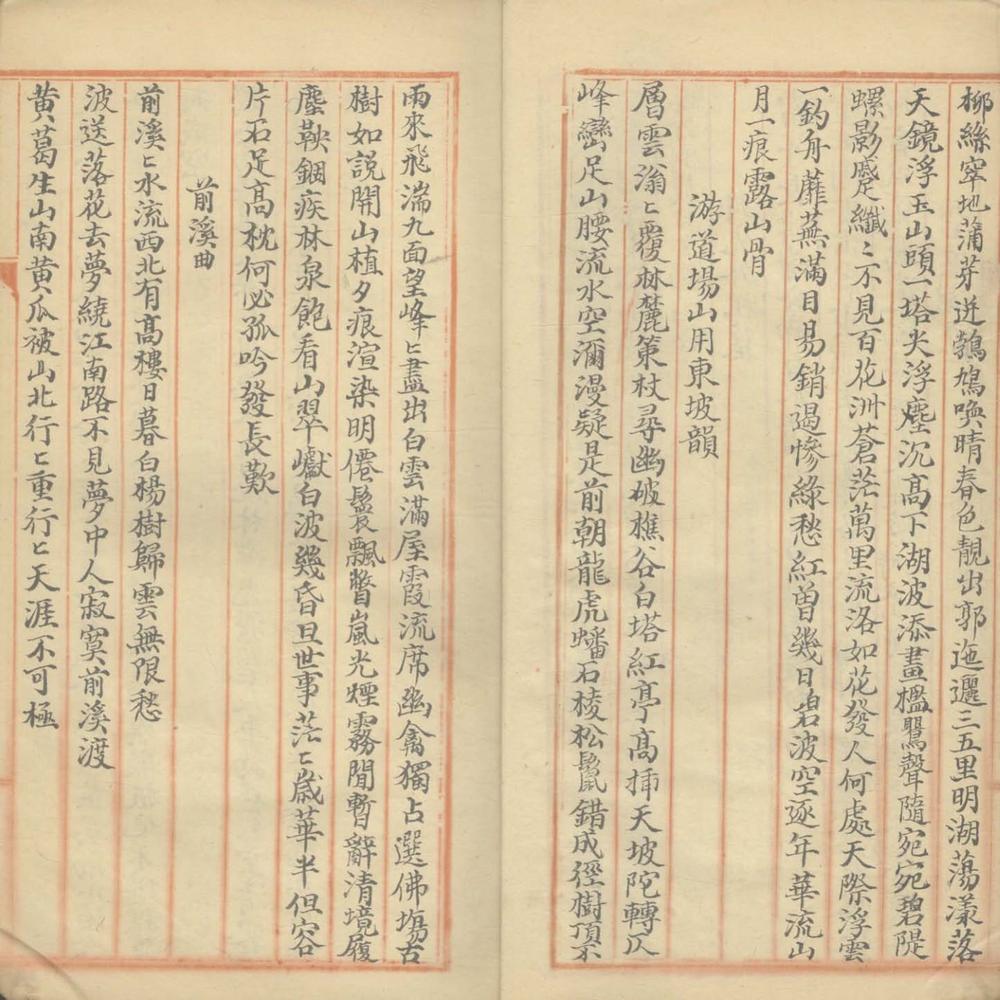 柳絲窣地蒲芽迸鵓鳩喚晴春色靚出郭迤邐三五里明湖蕩漾落
天鏡浮玉山頭一塔尖浮塵沉高下湖波添畫檻鷖聲隨宛宛碧隄
螺影蹙纖〻不見百花洲蒼茫萬里流洛如花發人何處天際浮雲
一釣舟蘼蕪滿目易銷遏慘綠愁紅曽幾日碧波空逐年華流山
月一痕露山骨
游道場山用東坡韻
層雲滃〻覆林麓策杖尋幽破樵谷白塔紅亭高揷天坡陀轉仄
峰巒足山腰流水空瀰漫疑是前朝龍虎蟠石棱松鬣錯成徑樹頂不
雨來飛湍九面望峰〻盡出白雲滿屋霞流席幽禽獨占選佛塲古
樹如說開山植夕痕渲染明僊鬟飄瞥嵐光煙霧閒暫辭清境履
塵鞅錮疾林泉飽看山翠巘白波幾昏旦世事茫〻歲華半但容
片石足高枕何必孤吟發長歎
前溪曲
前溪〻水流西北有高樓日暮白楊樹歸雲無限愁
波送落花去夢繞江南路不見夢中人寂寞前溪渡
黄葛生山南黄瓜被山北行〻重行〻天涯不可極